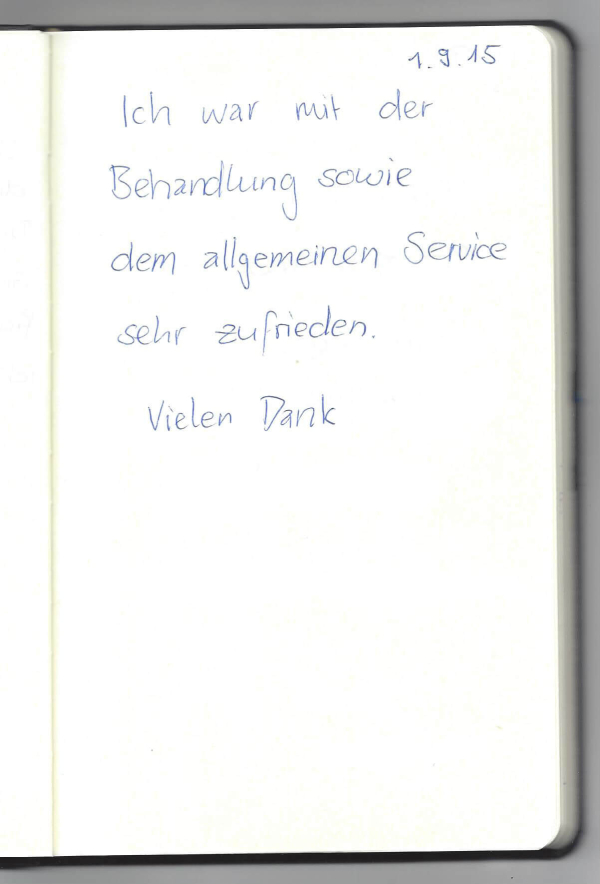 1.9.15
Ich war mit der
Behandlung sowie
dem allgemeinen Service
sehr zufrieden.
Vielen Dank